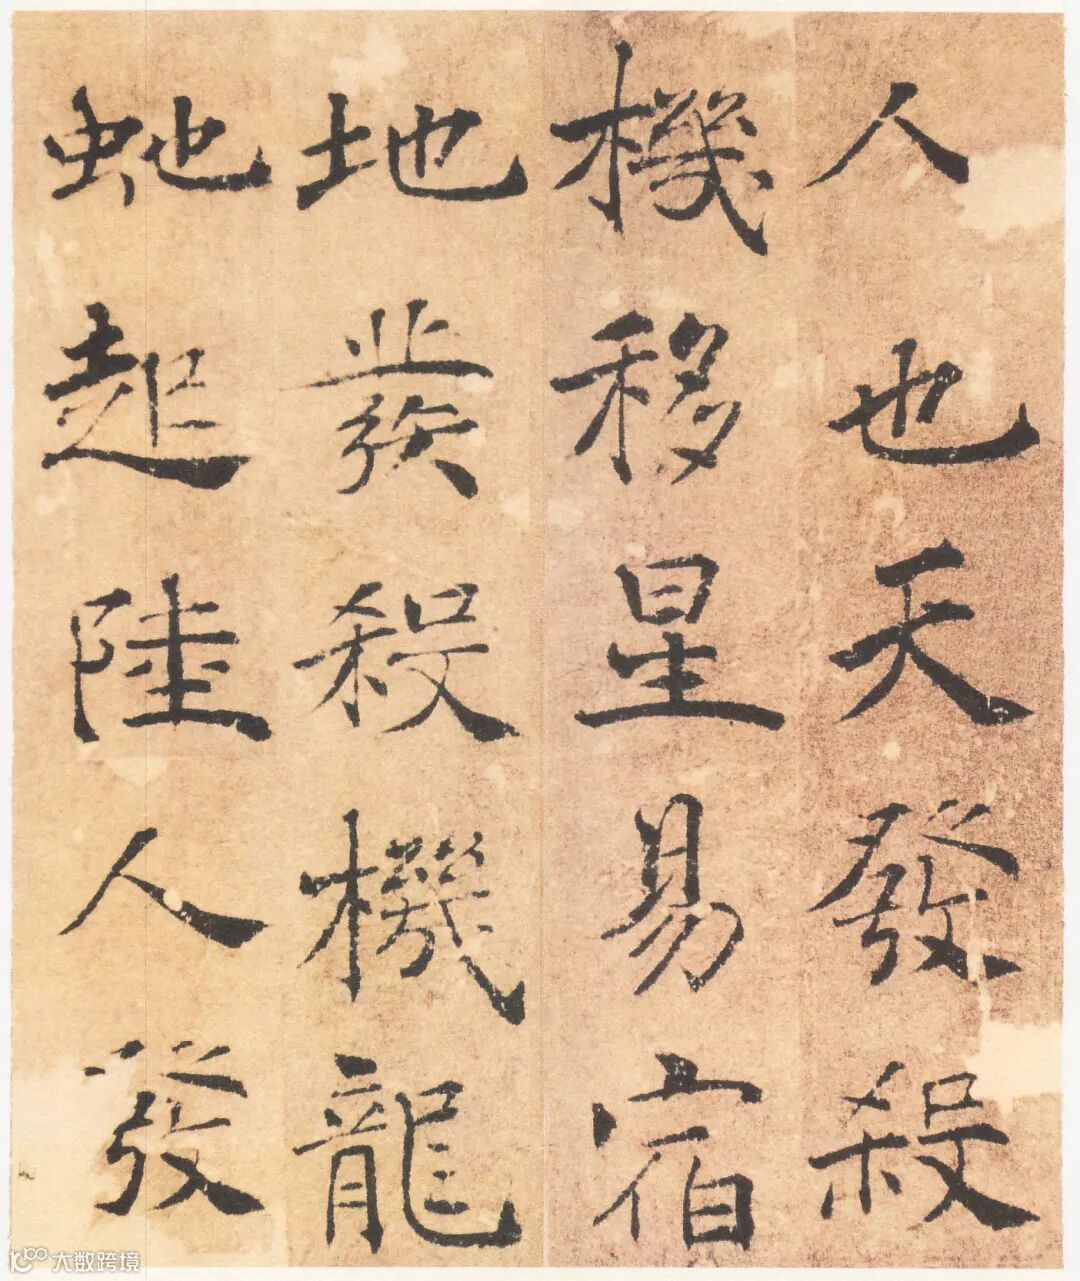 人也天發殺
機移星易宿
地發殺機龍
虵起陸人發
大数跨境